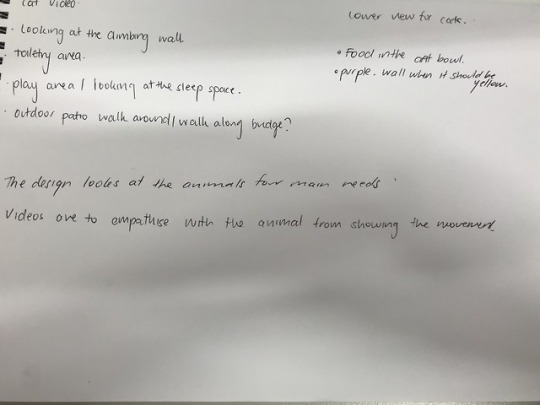 Cat Video
• Looking at the climbing wall
• toiletry area.
• play area / looking at the sleep space.
• outdoor patio walk around / walk along bridge?
Lower view for cats.
• Food in the cat bowl.
• purple. wall when it should be
yellow.
The design looks at the animals four main needs
Videos are to empathise with the animal from showing the movement.